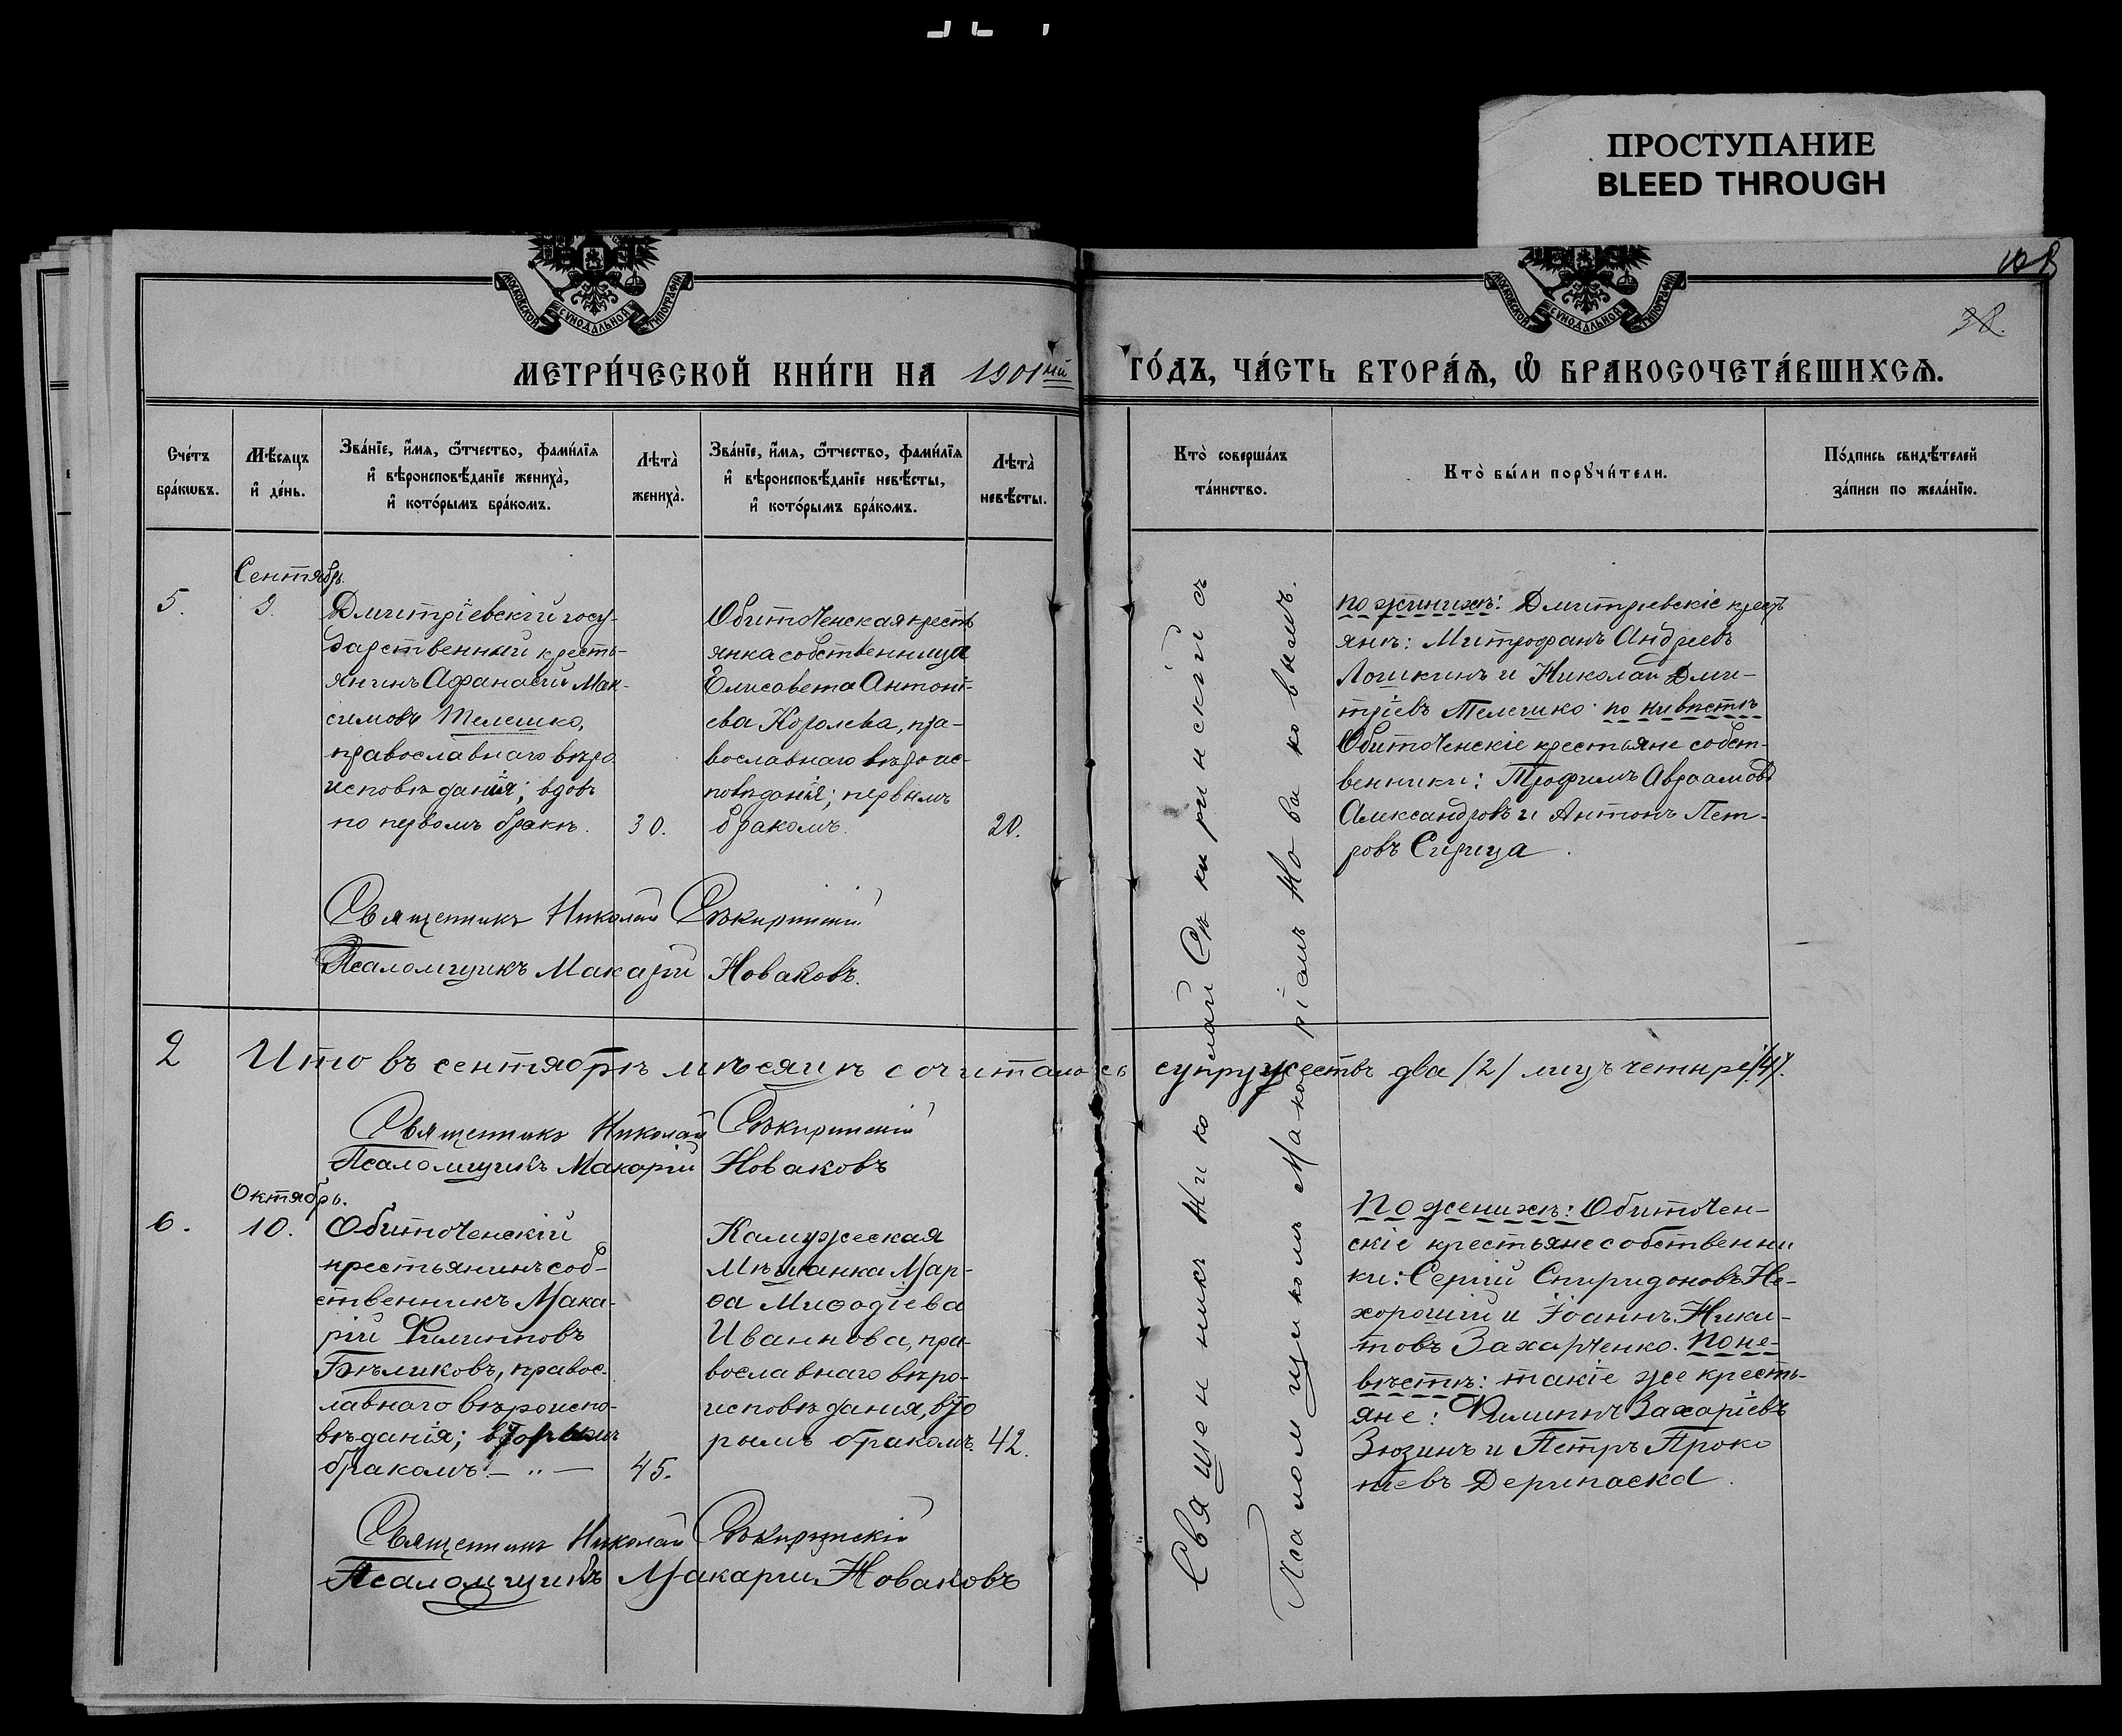 ПРОСТУПАНИЕ
BLEED THROUGH
МОСКОВСКОЙ СѴНОДАЛЬНОЙ ТИПОГРАФІИ
МОСКОВСКОЙ СѴНОДАЛЬНОЙ ТИПОГРАФІИ
38.
МЕТРИ́ЧЕСКОЙ КНИ́ГИ НА 1901ый ГО́ДЪ, ЧА́СТЬ ВТОРА́Ѧ, Ѽ БРАКОСОЧЕТА́ВШИХСѦ.
Сче́тъ бра́кωвъ.
Мѣ́сяцъ и҆ де́нь.
Зва́нїе, и҆́мя, ѻ҆́тчество, фами́лїя
и҆ вѣроисповѣ́данїе жениха̀,
и҆ кото́рымъ бра́комъ.
Лѣта̀ жениха̀.
Зва́нїе, и҆́мя, ѻ҆́тчество, фами́лїя
и҆ вѣроисповѣ́данїе невѣ́сты,
и҆ кото́рымъ бра́комъ.
Лѣта̀ невѣ́сты.
Кто̀ соверша́лъ та́инство.
Кто̀ бы́ли порꙋчи́тели.
По́дпись свидѣ́телей за́писи по жела́нїю.
Сентябрь.
5.
9.
Дмитріевскій госу-
дарственный кресть-
янинъ Афанасій Мак-
симовъ Телешко,
православнаго вѣро
исповѣданія; вдовъ
по первомъ бракѣ.
30.
Обиточенская кресть
янка собственница
Елисавета Антоні-
ева Королева, пра-
вославнаго вѣроис-
повѣданія; первымъ
бракомъ.
20.
Священникъ Николай Сѣкиринскій съ
Псаломщикомъ Макаріемъ Новаковымъ.
по жинихѣ: Дмитріевскіе крест
янѣ: Митрофанъ Андреевъ
Лошкинъ и Николай Дми-
тріевъ Телешко по нивѣстѣ
Обиточенскіе крестьяне собст-
венники: Трофимъ Авраамовъ
Александровъ и Антонъ Пет-
ровъ Сирица.
Священникъ Николай Сѣкиринскій
Псаломщикъ Макарій Новаковъ.
2 Итого въ сентябрѣ мѣсяцѣ сочиталось супружествъ два /2/ лицъ четыре /4/.
Священникъ Николай Сѣкиринскій
Псаломщикъ Макарій Новаковъ
Октябрь.
6.
10.
Обиточенскій
крестьянинъ соб-
ственникъ Мака-
рій Филиповъ
Бѣликовъ, правос-
лавнаго вѣроиспо-
вѣданія; вторымъ
бракомъ. — „ —
45.
Калужеская
Мѣщанка Мар-
ѳа Миѳодіева
Иваннова, пра-
вославнаго вѣро-
исповѣдания, вто
рымъ бракомъ.
42.
По женихѣ: Обиточен-
скіе крестьяне собственни
ки: Сергій Спиридоновъ Не-
хорошій и Іоаннъ Ники-
товъ Захарченко. По не-
вѣстѣ: такіе же кресть-
яне: Филиппъ Захаріевъ
Зюзинъ и Петръ Проко
піевъ Дерипаска.
Священникъ Николай Сѣкиринскій
Псаломщикъ Макарій Новаковъ